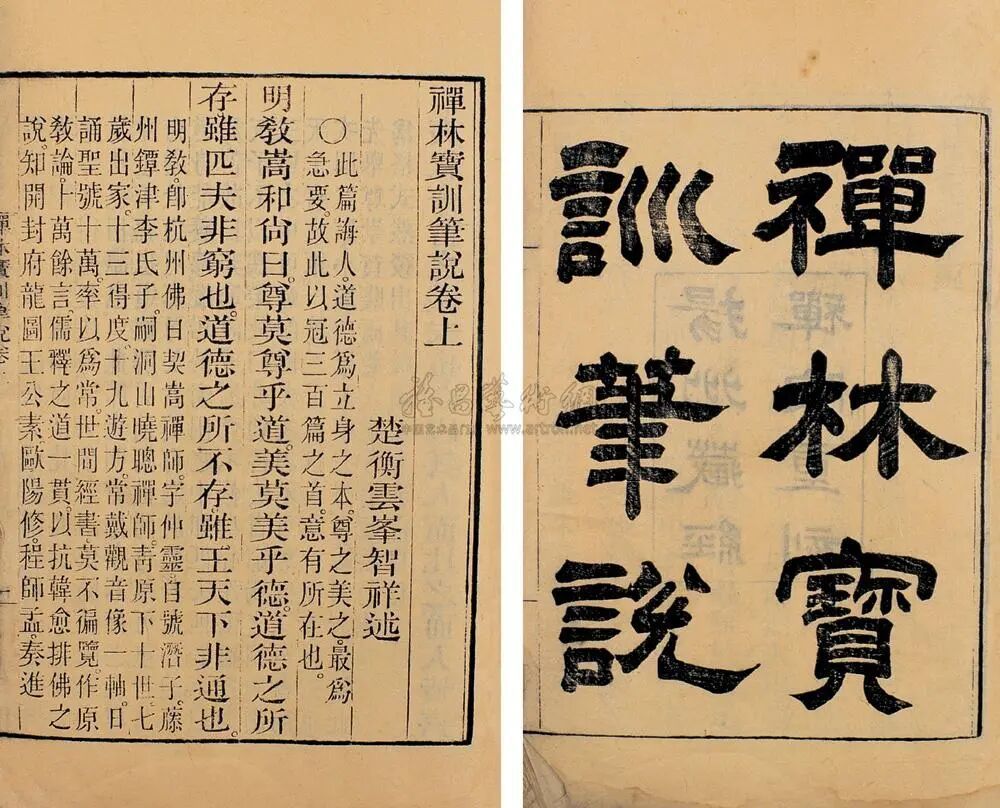 禪林寶
訓筆説
禪林寶訓筆說卷上
楚衡雲峯智祥述
○此篇誨人道德爲立身之本尊之美之最爲
急要故此以冠三百篇之首意有所在也
明教嵩和尙曰尊莫尊乎道美莫美乎德道德之所
存雖匹夫非窮也道德之所不存雖王天下非通也
明教卽杭州佛日契嵩禪師字仲靈自號潛子藤
州鐔津李氏子嗣洞山曉聰禪師靑原下十世七
歲出家十三得度十九遊方常戴觀音像一軸日
誦聖號十萬率以爲常世間經書莫不徧覽作原
敎論十萬餘言儒釋之道一貫以抗韓愈排佛之
說知開封府龍圖王公素歐陽修程師孟奏進